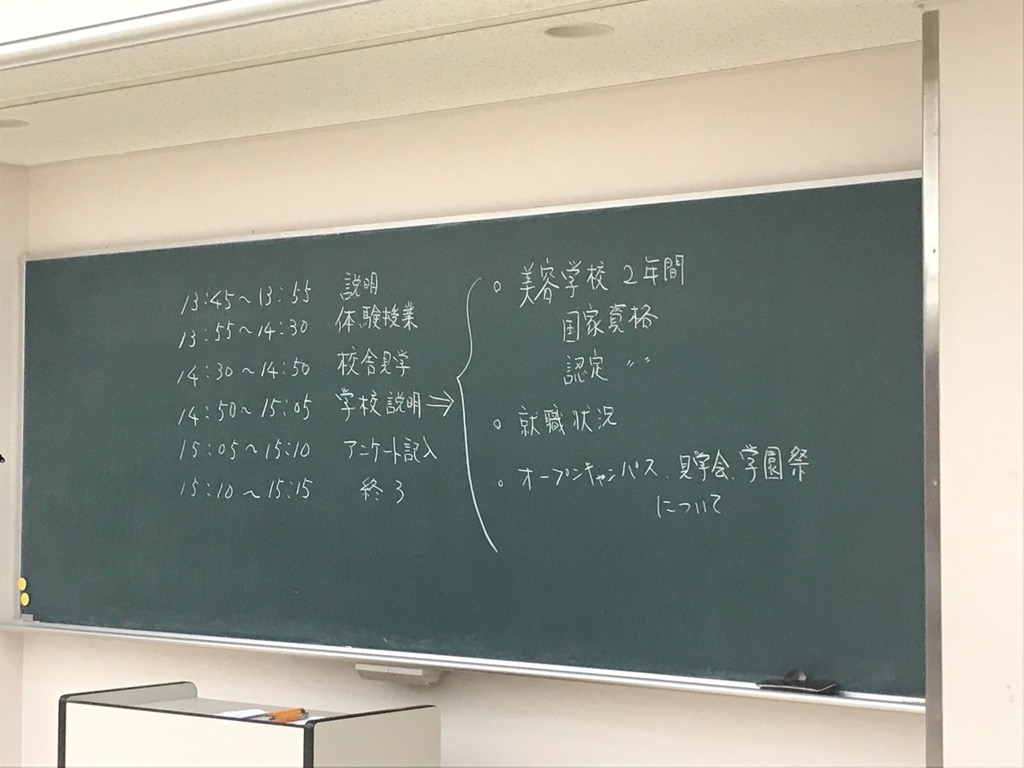 13:45～13:55 説明
13:55～14:30 体験授業
14:30～14:50 校舎見学
14:50～15:05 学校説明⇒
15:05～15:10 アンケート記入
15:10～15:15 終了
○ 美容学校 2年間
国家資格
認定 〃
○ 就職状況
○ オープンキャンパス、見学会、学園祭
について